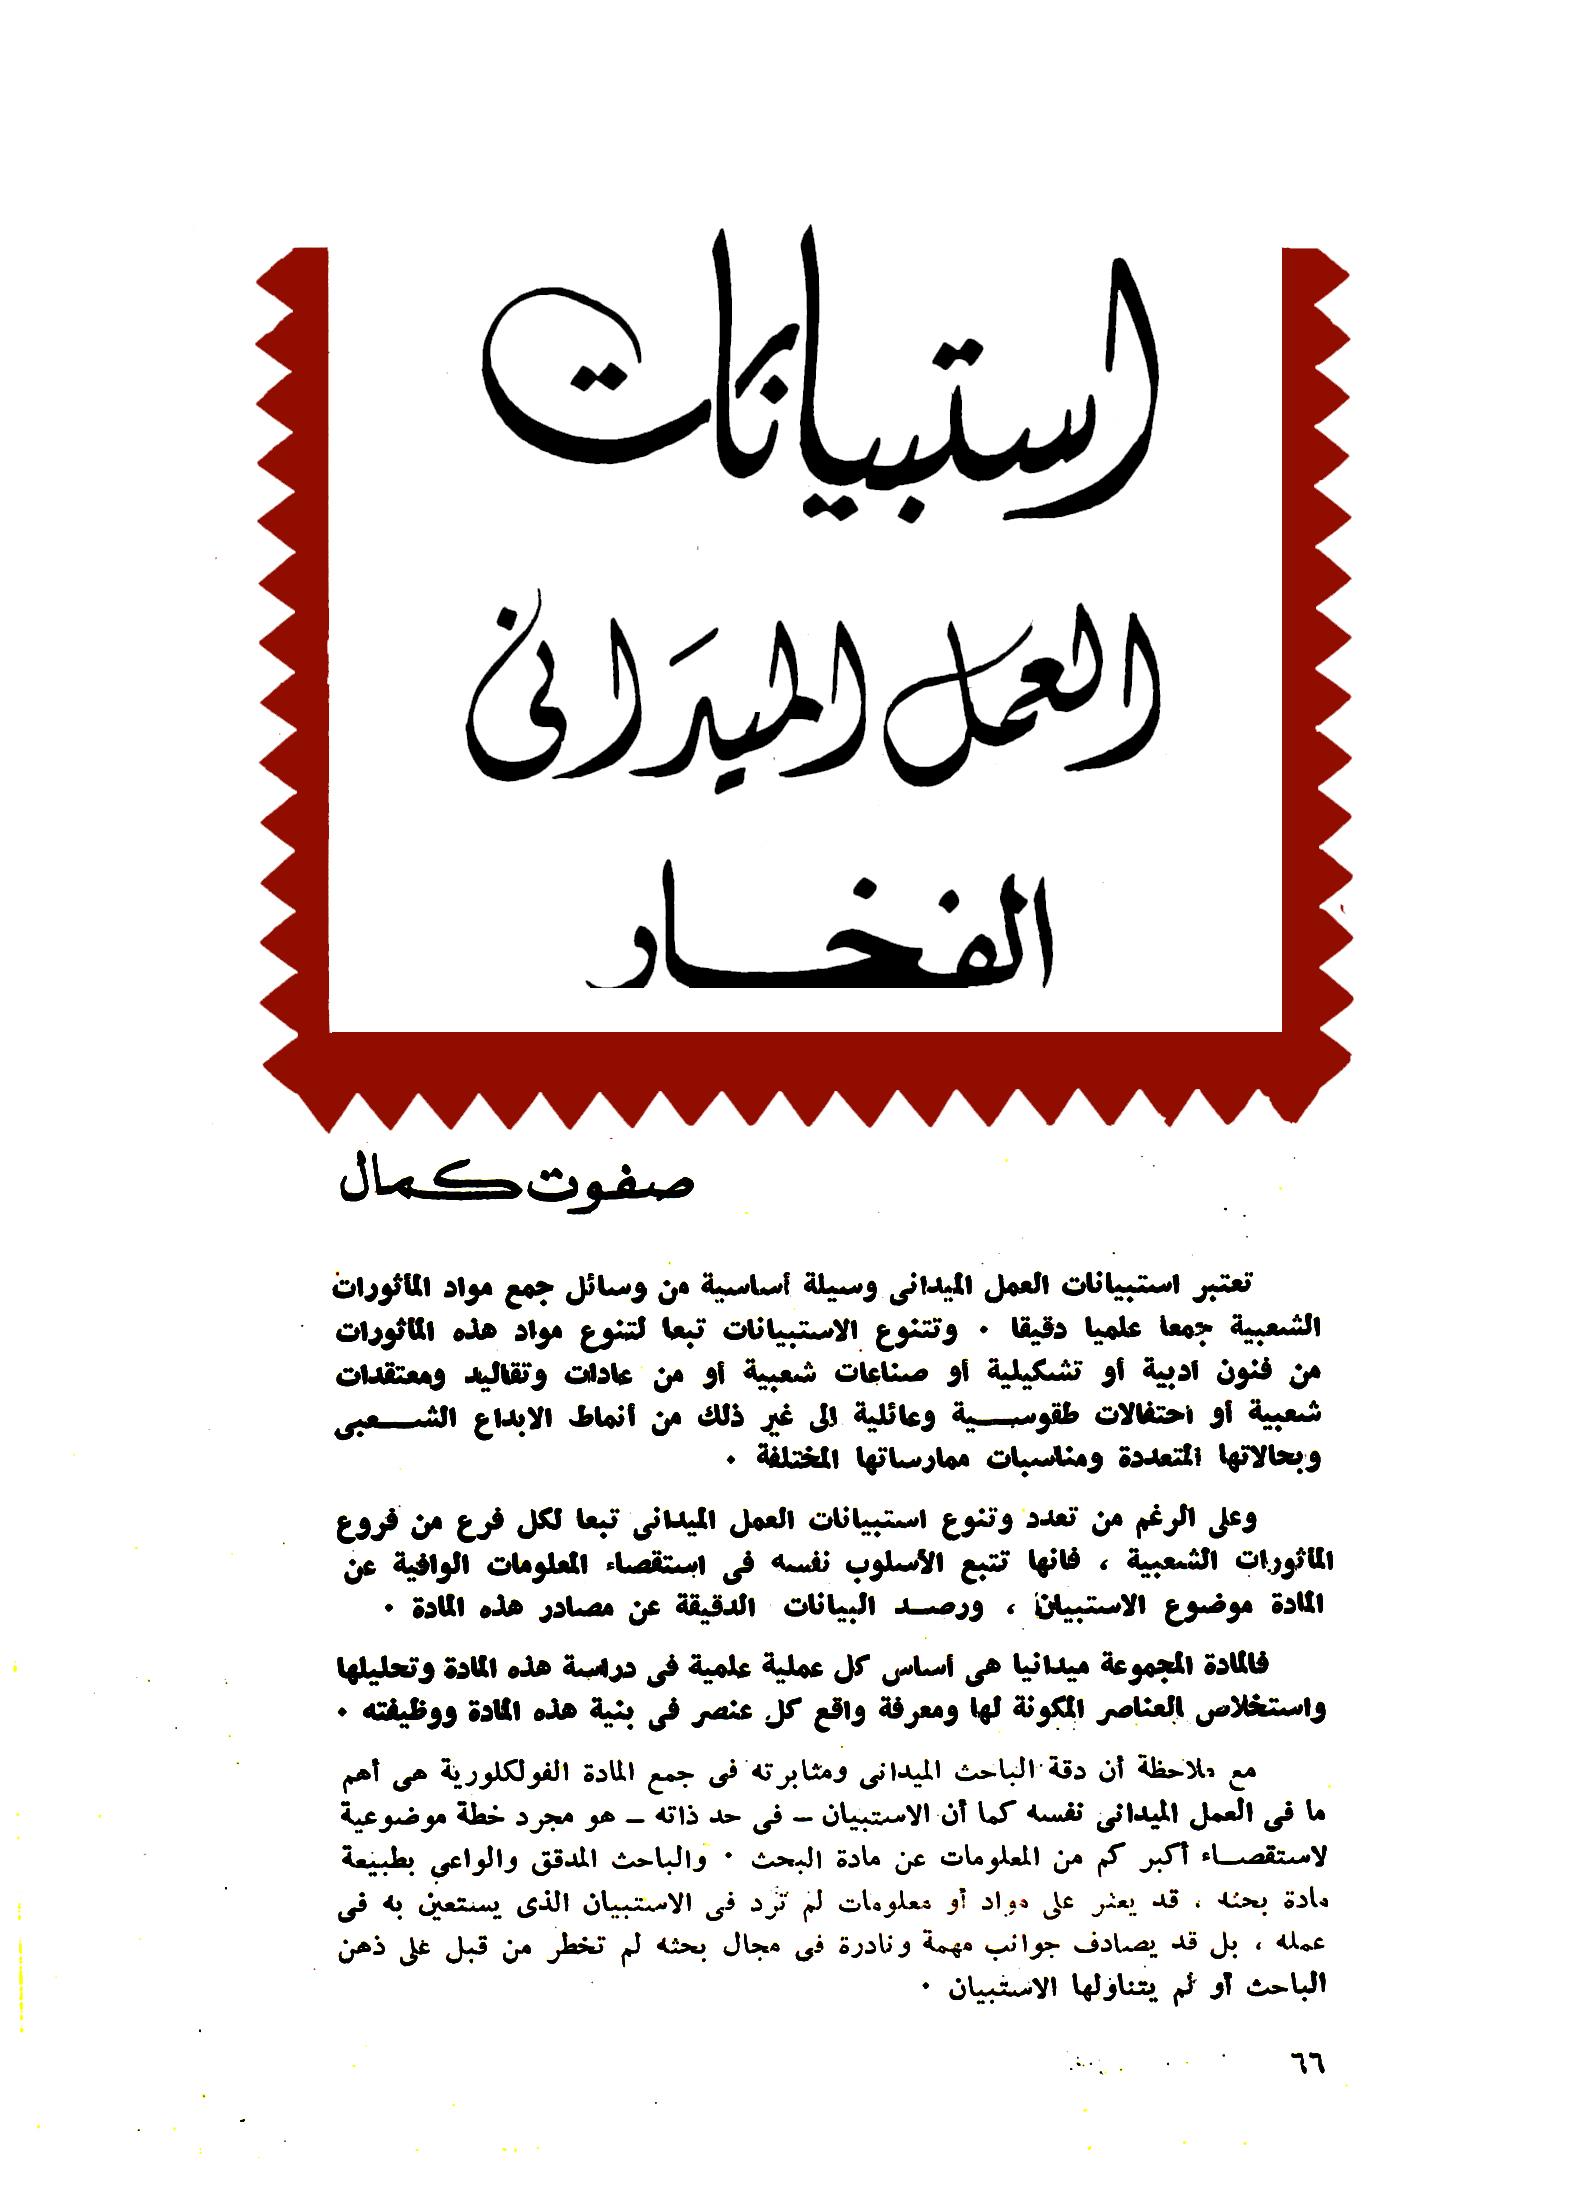 استبيانات
العمل الميدانى
الفخار
صفوت كمال
تعتبر استبيانات العمل الميدانى وسيلة أساسية من وسائل جمع مواد المأثورات
الشعبية جمعا علميا دقيقا ٠ وتتنوع الاستبيانات تبعا لتنوع مواد هذه المأثورات
من فنون ادبية أو تشكيلية أو صناعات شعبية أو من عادات وتقاليد ومعتقدات
شعبية أو احتفالات طقوسية وعائلية الى غير ذلك من أنماط الابداع الشعبى
وبحالاتها المتعددة ومناسبات ممارساتها المختلفة ٠
وعلى الرغم من تعدد وتنوع استبيانات العمل الميدانى تبعا لكل فرع من فروع
المأثورات الشعبية ، فانها تتبع الأسلوب نفسه فى استقصاء المعلومات الوافية عن
المادة موضوع الاستبيان ، ورصد البيانات الدقيقة عن مصادر هذه المادة ٠
فالمادة المجموعة ميدانيا هى أساس كل عملية علمية فى دراسة هذه المادة وتحليلها
واستخلاص العناصر المكونة لها ومعرفة واقع كل عنصر فى بنية هذه المادة ووظيفته ٠
مع ملاحظة أن دقة الباحث الميدانى ومثابرته فى جمع المادة الفولكلورية هى أهم
ما فى العمل الميدانى نفسه كما أن الاستبيان – فى حد ذاته – هو مجرد خطة موضوعية
لاستقصاء أكبر كم من المعلومات عن مادة البحث ٠ والباحث المدقق والواعى بطبيعة
مادة بحثه ، قد يعثر على مواد أو معلومات لم ترد فى الاستبيان الذى يستعين به فى
عمله ، بل قد يصادف جوانب مهمة ونادرة فى مجال بحثه لم تخطر من قبل على ذهن
الباحث أو لم يتناولها الاستبيان ٠
٦٦